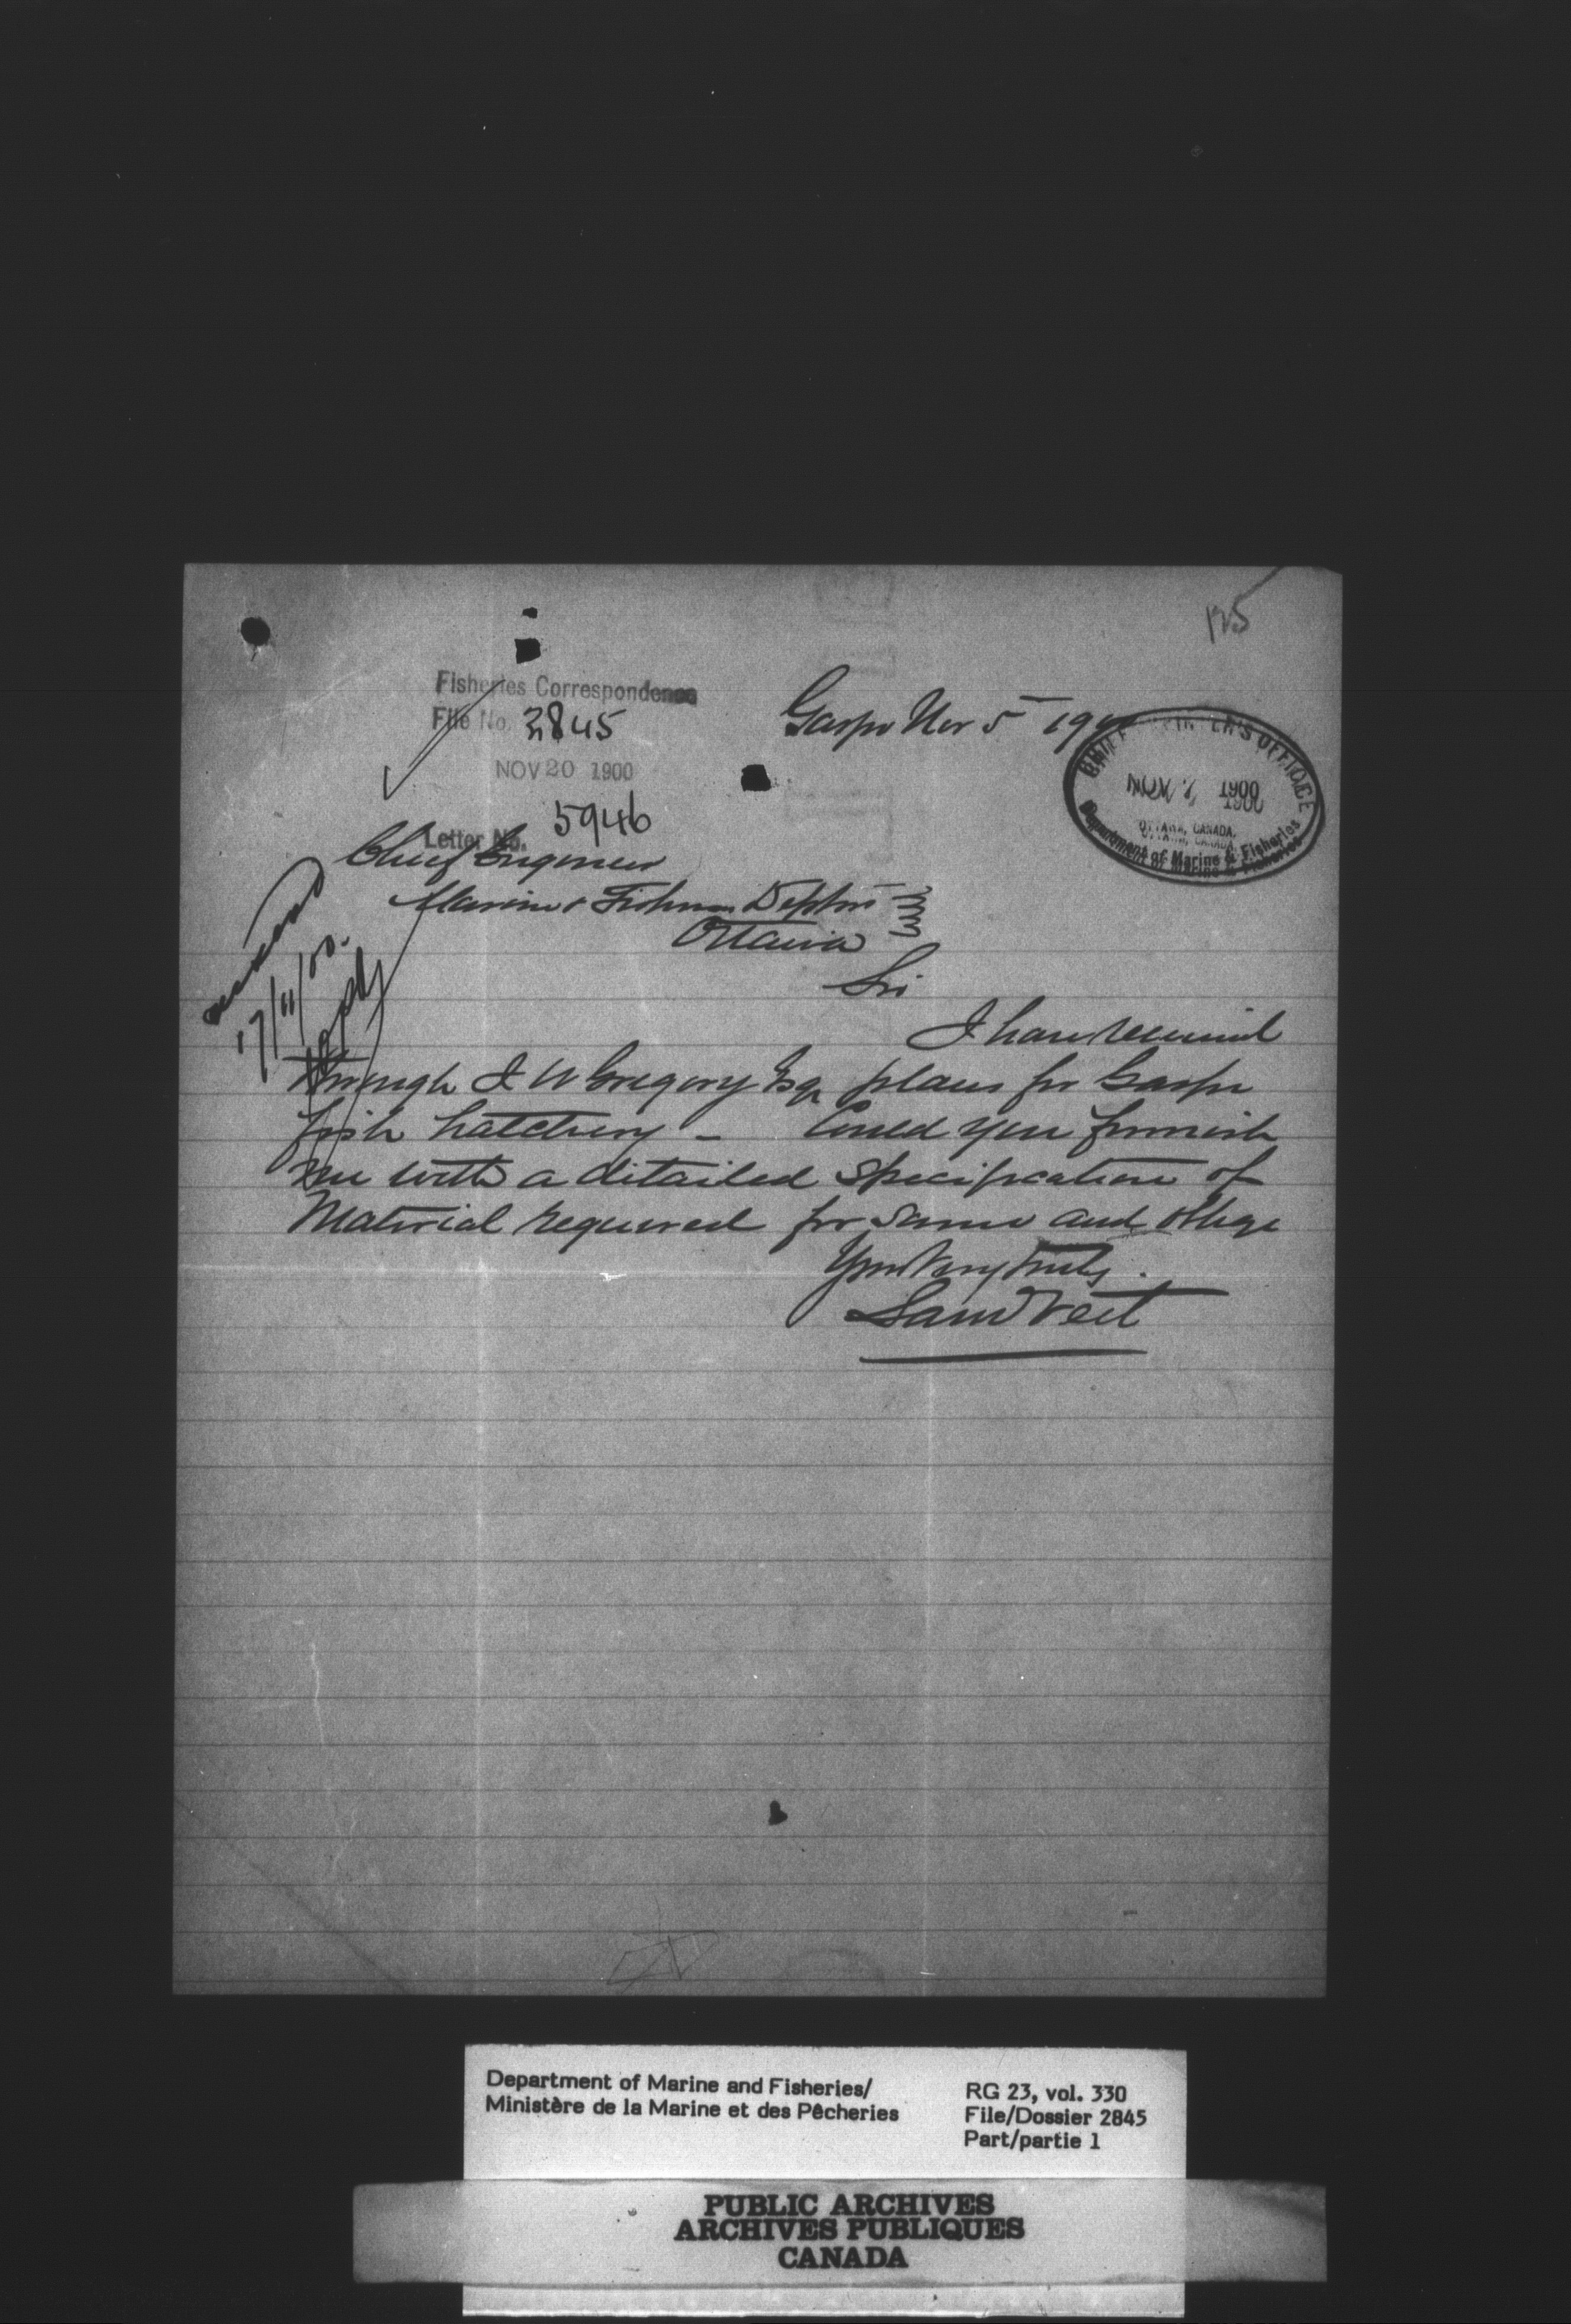 125
Fisheries Correspondence
File No. 2845
NOV 20 1900
Letter No. 5946
Gaspe Nov 5 1900
CHIEF ENGINEER'S OFFICE
NOV 1900
OTTAWA, CANADA.
Department of Marine & Fisheries
Chief Engineer
Marine & Fisheries Deptm
Ottawa
Sir
17/11/00.
Reply
I have received
through J W Gregory Esq plans for Gaspe
fish hatchery - Could you furnish
me with a detailed specification of
Material required for same and oblige
Yours Very truly.
Sam Veit
Department of Marine and Fisheries/
Ministère de la Marine et des Pêcheries
RG 23, vol. 330
File/Dossier 2845
Part/partie 1
PUBLIC ARCHIVES
ARCHIVES PUBLIQUES
CANADA